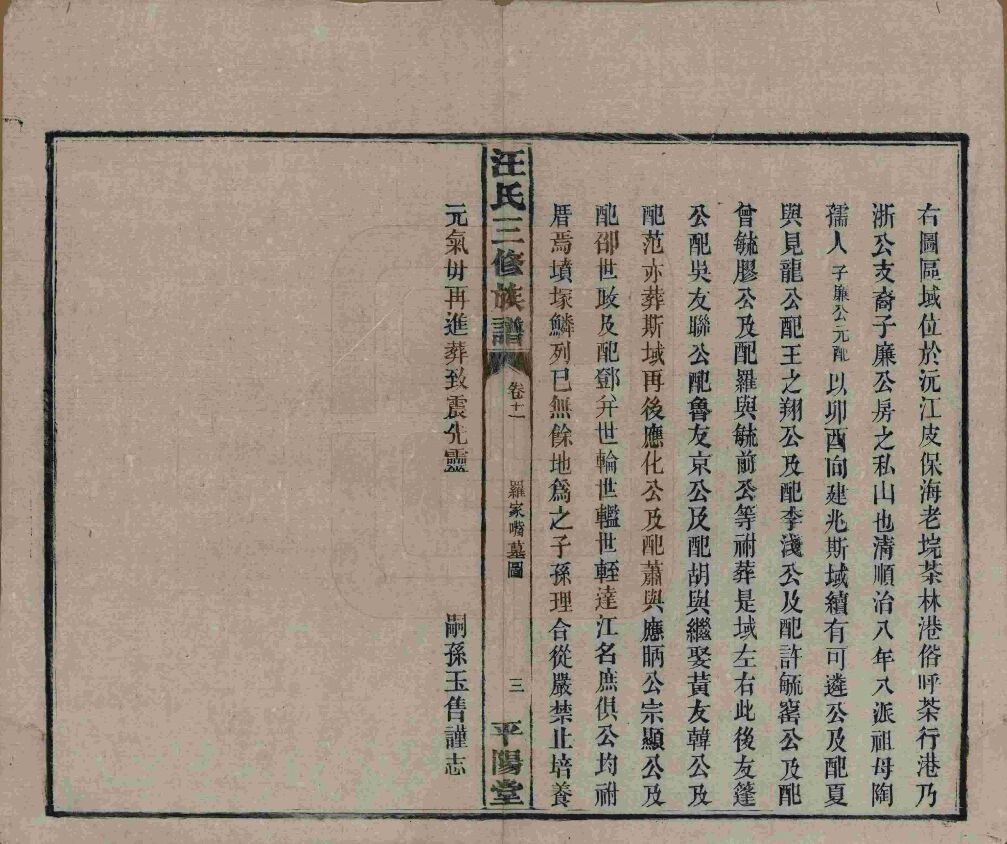 右圖區域位於沅江皮保海老垸茶林港俗呼茶行港乃
浙公支裔子廉公房之私山也清順治八年八派祖母陶
孺人子廉公元配以卯酉向建兆斯域續有可遴公及配夏
與見龍公配王之翔公及配李淺公及配許毓窰公及配
曾毓膠公及配羅與毓前公等祔葬是域左右此後友篷
公配吳友聯公配魯友京公及配胡與繼娶黃友韓公及
配范亦葬斯域再後應化公及配蕭與應昞公宗顯公及
配邵世攻及配鄧弁世輪世轞世輊達江名庶俱公均祔
厝焉墳塚鱗列已無餘地爲之子孫理合從嚴禁止培養
汪氏三修族譜
卷十一
羅家嘴墓圖
三
平陽堂
元氣毋再進葬致震先靈
嗣孫玉售謹志